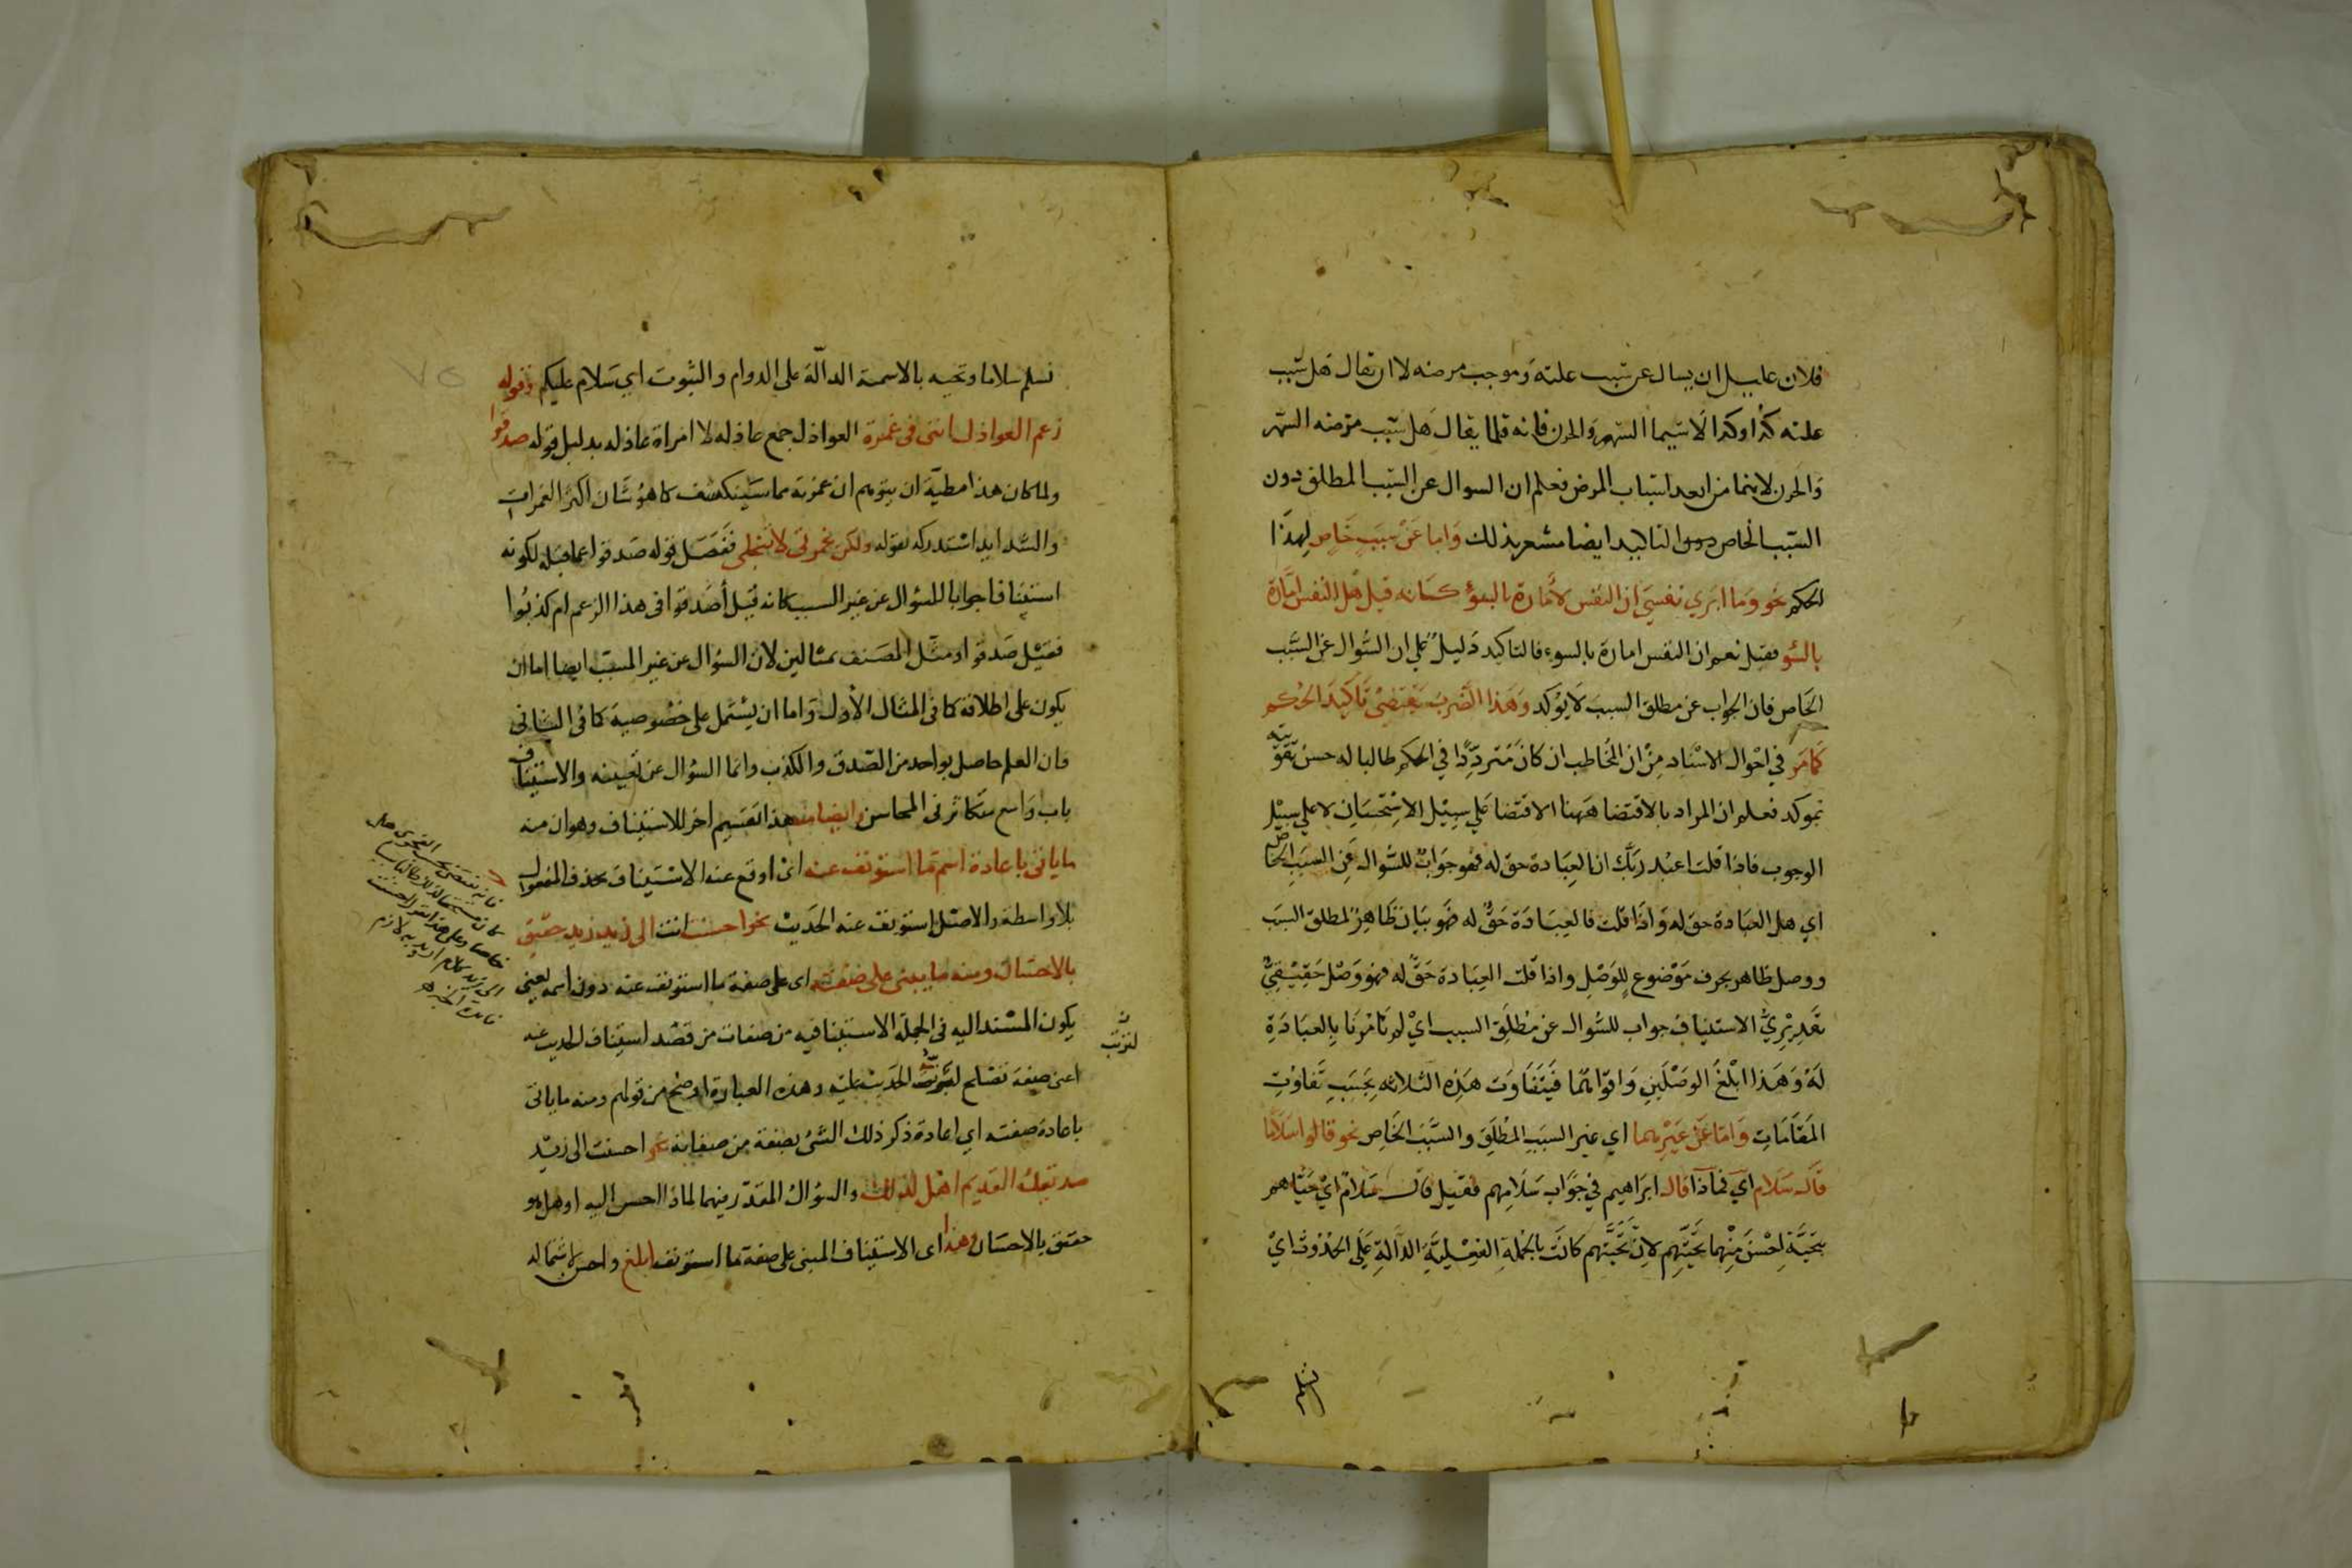 فلان عليل ان يسال عن سبب علته وموجب مرضه لا ان يقال هل سبب
علته كذا وكذا لاسيما السهر والحزن فانه قلما يقال هل سبب مرضه السهر
والحزن لانهما من ابعد اسباب المرض فعلم ان السوال عن السبب المطلق دون
السبب الخاص وعدم التاكيد ايضا مشعر بذلك واما عن سبب خاص لهذا
الحكم نحو وما ابري نفسي ان النفس لامارة بالسوء كانه قيل هل النفس امارة
بالسوء فقيل نعم ان النفس امارة بالسوء فالتاكيد دليل على ان السؤال عن السبب
الخاص فان الجواب عن مطلق السبب لا يؤكد وهذا الضرب يقتضي تاكيد الحكم
كما مر في احوال الاسناد من ان المخاطب ان كان مترددا في الحكم طالبا له حسن تقويته
بمؤكد فعلم ان المراد بالاقتضا ههنا الاقتضا على سبيل الاستحسان لا على سبيل
الوجوب فاذا قلت اعبد ربك ان العبادة حق له فهو جواب للسؤال عن السبب الخاص
اي هل العبادة حق له واذا قلت فالعبادة حق له فهو بيان ظاهر لمطلق السبب
ووصل ظاهر بحرف موضوع للوصل واذا قلت العبادة حق له فهو وصل حقيقي
تقديري الاستيناف جواب للسؤال عن مطلق السبب اي لم تامرنا بالعبادة
له وهذا ابلغ الوصلين واقواهما فيتفاوت هذه الثلاثة بحسب تفاوت
المقامات واما عن غيرهما اي غير السبب المطلق والسبب الخاص نحو قالوا سلاما
قال سلام اي فماذا قال ابراهيم في جواب سلامهم فقيل قال سلام اي حياهم
بتحية احسن منهما تحيتهم لان تحيتهم كانت بالجملة الفعلية الدالة على الحدوث اي
نسلم
نسلم سلاما وتحيته بالاسمية الدالة على الدوام والثبوت اي سلام عليكم وقوله
زعم العواذل انني في غمرة العواذل جمع عاذلة لا امراة عاذلة بدليل قوله صدقوا
ولما كان هذا مظنة ان يتوهم ان غمرته مما سينكشف كما هو شان اكثر الغمرات
والشدايد استدركه بقوله ولكن غمرتي لا تنجلي ففصل قوله صدقوا عما قبله لكونه
استينافا جوابا للسؤال عن غير السبب كانه قيل أصدقوا في هذا الزعم ام كذبوا
فقيل صدقوا ومثل المصنف بمثالين لان السؤال عن غير السبب ايضا اما ان
يكون على اطلاقه كما في المثال الاول واما ان يشتمل على خصوصية كما في الثاني
فان العلم حاصل بواحد من الصدق والكذب وانما السؤال عن تعيينه والاستيناف
باب واسع متكاثر في المحاسن وايضا منه هذا تقسيم اخر للاستيناف وهو ان منه
ما ياتي باعادة اسم ما استونف عنه اي اوقع عنه الاستيناف بحذف المفعول
بلا واسطة والاصل استونف عنه الحديث نحو احسنت انت الى زيد زيد حقيق
بالاحسان ومنه ما يبنى على صفته اي على صفة ما استونف عنه دون اسمه يعني
يكون المسند اليه في الجملة الاستينافية من صفات من قصد استيناف الحديث عنه
اعني صفة تصلح لترتب الحديث عليه وهذه العبارة اوضح من قولهم ومنه ما ياتي
باعادة صفته اي اعادة ذكر ذلك الشئ بصفة من صفاته نحو احسنت الى زيد
صديقك القديم اهل لذلك والسؤال المقدر فيهما لماذا احسن اليه او هل هو
حقيق بالاحسان وهذا اي الاستيناف المبني على صفة ما استونف ابلغ واحسن لاشتماله
لترتب
٧٥